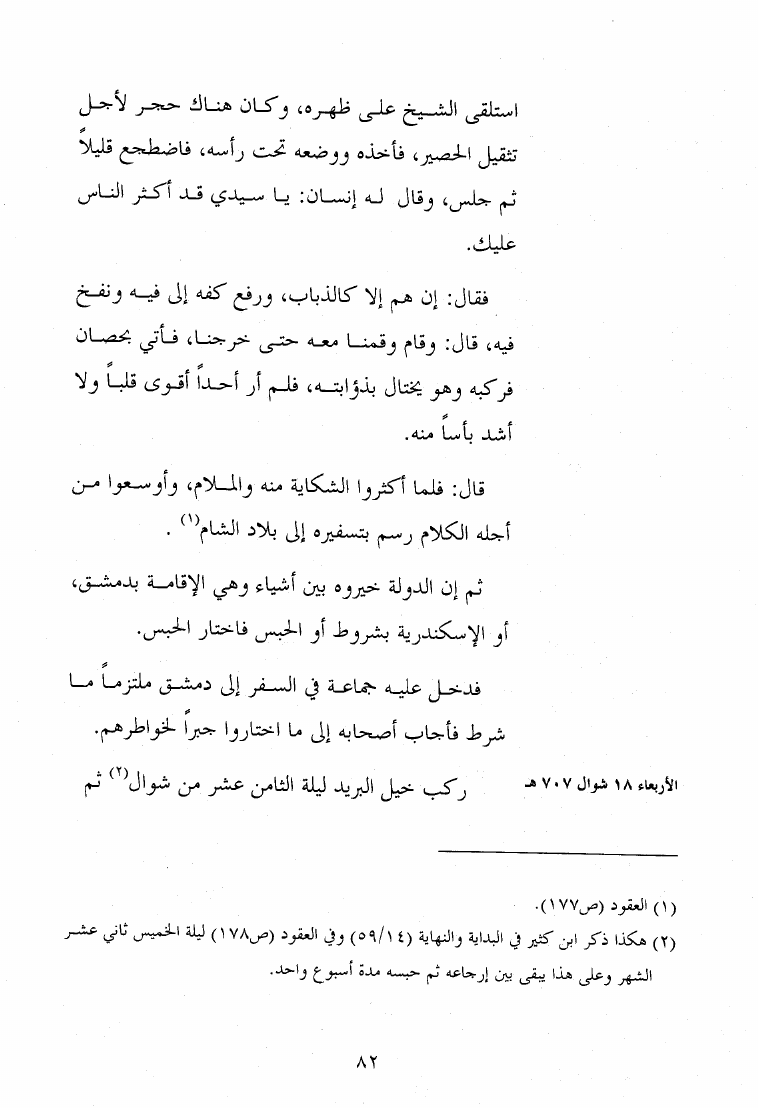 استلقى الشيخ على ظهره، وكان هناك حجر لأجل
تثقيل الحصير، فأخذه ووضعه تحت رأسه، فاضطجع قليلاً
ثم جلس، وقال له إنسان: يا سيدي قد أكثر الناس
عليك.
فقال: إن هم إلا كالذباب، ورفع كفه إلى فيه ونفخ
فيه، قال: وقام وقمنا معه حتى خرجنا، فأتي بحصان
فركبه وهو يختال بذؤابته، فلم أر أحداً أقوى قلباً ولا
أشد بأساً منه.
قال: فلما أكثروا الشكاية منه والملام، وأوسعوا من
أجله الكلام رسم بتسفيره إلى بلاد الشام(١) .
ثم إن الدولة خيروه بين أشياء وهي الإقامة بدمشق،
أو الإسكندرية بشروط أو الحبس فاختار الحبس.
فدخل عليه جماعة في السفر إلى دمشق ملتزماً ما
شرط فأجاب أصحابه إلى ما اختاروا جبراً لخواطرهم.
الأربعاء ١٨ شوال ٧٠٧ هـ
ركب خيل البريد ليلة الثامن عشر من شوال(٢) ثم
(١) العقود (ص١٧٧).
(٢) هكذا ذكر ابن كثير في البداية والنهاية (٥٩/١٤) وفي العقود (ص١٧٨) ليلة الخميس ثاني عشر
الشهر وعلى هذا يبقى بين إرجاعه ثم حبسه مدة أسبوع واحد.
٨٢